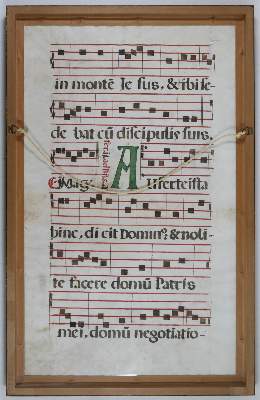 in montē Je sus, & ibi se-
de bat cū discipulis suis.
Mag. A Uferte ista
hinc, di cit Dominꝰ: & noli-
te facere domū Patris
mei, domū negotiatio-